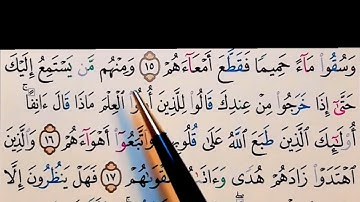 وَسُقُوا۟ مَآءً حَمِيمًا فَقَطَّعَ أَمْعَآءَهُمْ ١٥ وَمِنْهُم مَّن يَسْتَمِعُ إِلَيْكَ
حَتَّىٰٓ إِذَا خَرَجُوا۟ مِنْ عِندِكَ قَالُوا۟ لِلَّذِينَ أُوتُوا۟ ٱلْعِلْمَ مَاذَا قَالَ ءَانِفًا ۚ
أُو۟لَٰٓئِكَ ٱلَّذِينَ طَبَعَ ٱللَّهُ عَلَىٰ قُلُوبِ وَٱتَّبَعُوٓا۟ أَهْوَآءَهُمْ ١٦ وَٱلَّذِينَ
ٱهْتَدَوْا۟ زَادَهُمْ هُدًى وَءَاتَىٰ تَقْوَىٰهُمْ ١٧ فَهَلْ يَنظُرُونَ إِلَّا